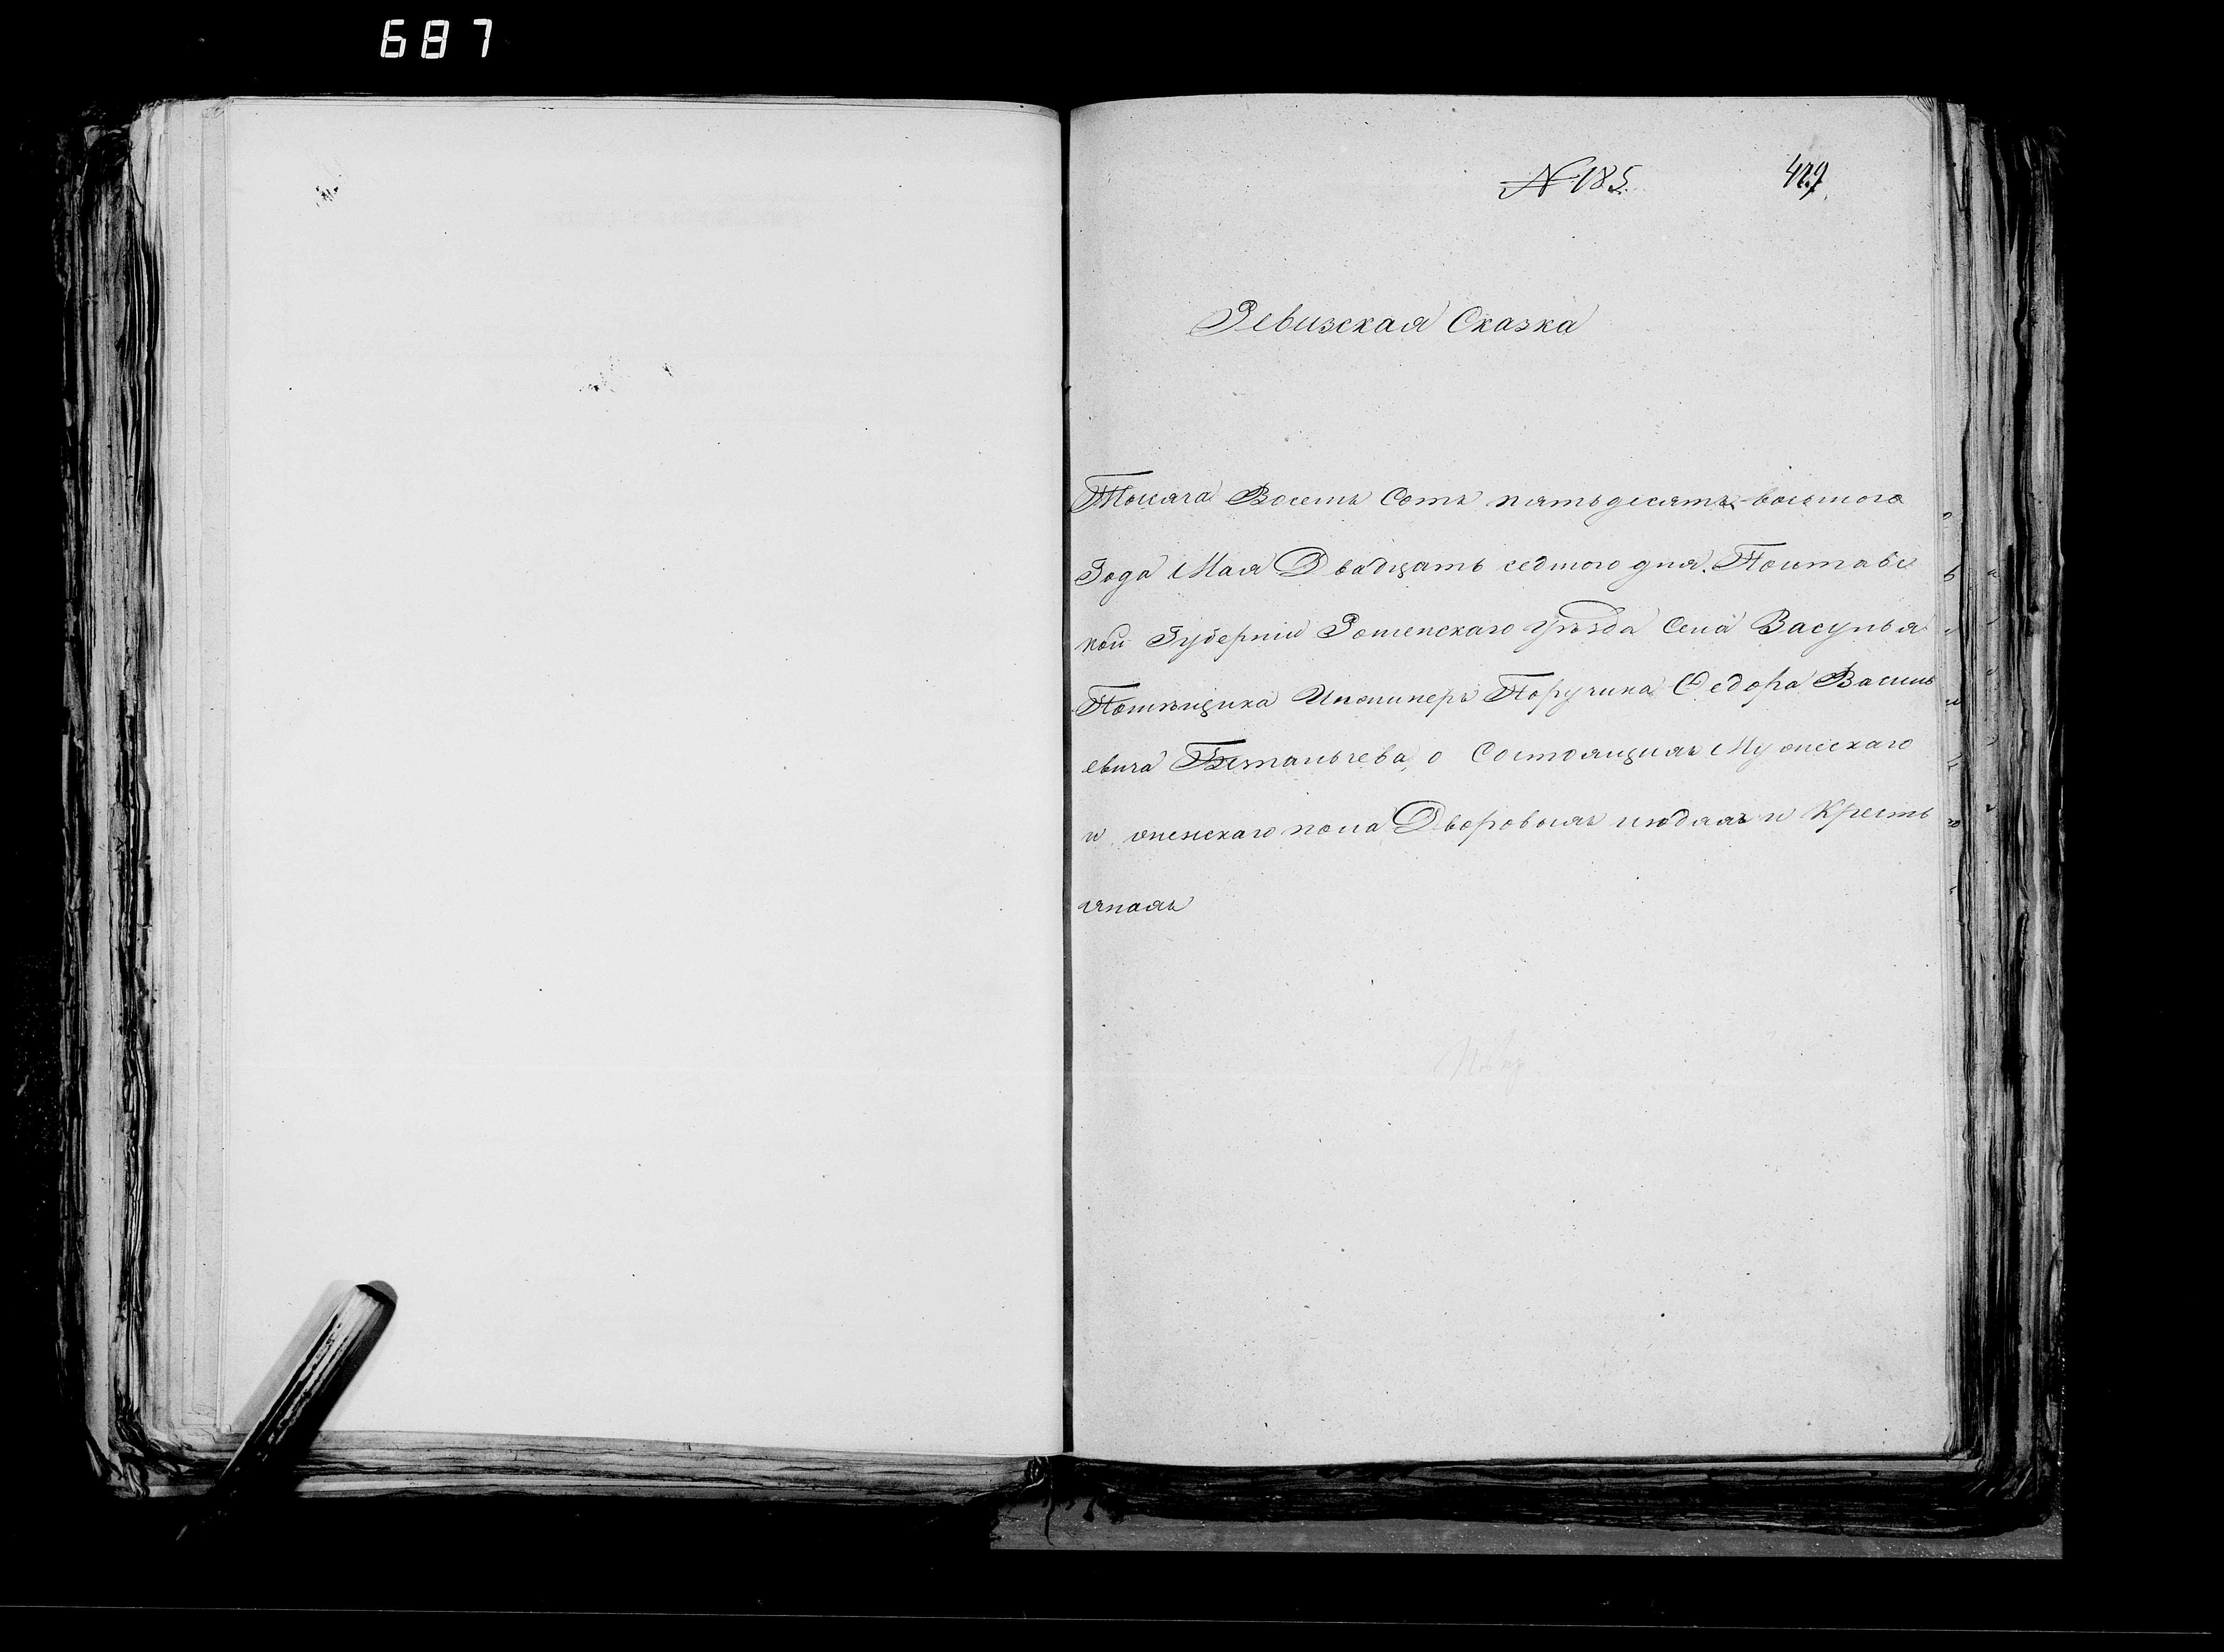 687
№ 185. 429
Ревизская Сказка
Тысяча Восемь Сотъ пятьдесятъ восьмого
Года Мая Двадцать седмого дня. Полтавс
кой Губерніи Роменскаго Уѣзда Села Васулья
Помѣщика Инжинеръ Поручика Федора Василь
евича о Состоящихъ Мужескаго
и женскаго пола Дворовыхъ людяхъ и Кресть
янахъ